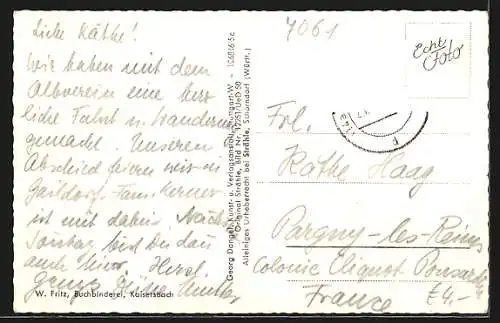 Liebe Käthe!
Wir haben mit dem
Albverein eine herr
liche Fahrt u. Wanderung
gemacht. Unseren
Abschied feiern wir in
Gaildorf. Fam. Kerner
ist mit dabei. Nächst
Sonntag bist Du dan
auch hier. Herzl.
W. Fritz, Buchbinderei, Kaisersbach
Georg Dongus, Kunst- u. Verlagsanstalt, Stuttgart-W
Original Strähle, Bild Nr.
Alleiniges Urheberrecht bei Strähle, Schorndorf (Württ.)
7061
Echt
Foto
Frl.
Käthe Haag
Pargny-les-Reims
Colonie Cliquot Ponsardin
France
£4,-